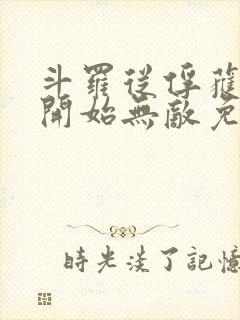 斗羅從俘獲
開始無敵免
時光淡了記憶